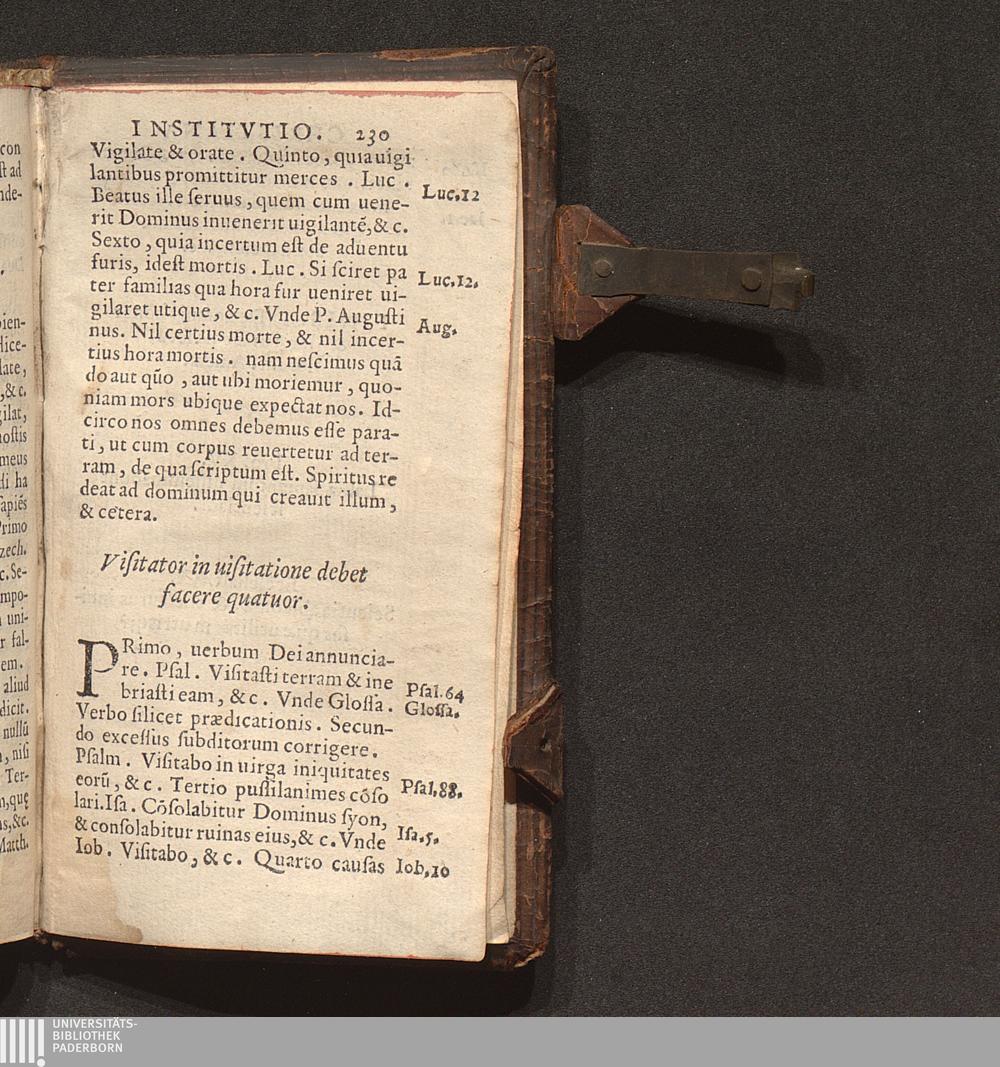 INSTITVTIO. 230
Vigilate & orate. Quinto, quia uigi
lantibus promittitur merces. Luc.
Beatus ille ſeruus, quem cum uene-
Luc.12
rit Dominus inuenerit uigilantē,& c.
Sexto, quia incertum eſt de aduentu
furis, ideſt mortis. Luc. Si ſciret pa
Luc.12.
ter familias qua hora fur ueniret ui-
gilaret utique, & c. Vnde P. Auguſti
Aug.
nus. Nil certius morte, & nil incer-
tius hora mortis. nam neſcimus quā
do aut qūo, aut ubi moriemur, quo-
niam mors ubique expectat nos. Id-
circo nos omnes debemus eſſe para-
ti, ut cum corpus reuertetur ad ter-
ram, de qua ſcriptum eſt. Spiritus re
deat ad dominum qui creauit illum,
& cetera.
Viſitator in uiſitatione debet
facere quatuor.
PRimo, uerbum Dei annuncia-
re. Pſal. Viſitaſti terram & ine
Pſal.64
briaſti eam, & c. Vnde Gloſſa.
Gloſſa.
Verbo ſilicet prædicationis. Secun-
do exceſſus ſubditorum corrigere.
Pſalm. Viſitabo in uirga iniquitates
eorū, & c. Tertio puſſilanimes cōſo
Pſal.88.
lari.Iſa. Cōſolabitur Dominus ſyon,
& conſolabitur ruinas eius,& c. Vnde
Iſa.5.
Iob. Viſitabo, & c. Quarto cauſas
Iob.10
con
ſt ad
nde-
bien-
dice-
late,
,& c.
gilat,
hoſtis
meus
di ha
ſapiēs
Primo
zech.
c. Se-
mpo-
uni-
r fal-
em.
aliud
dicit.
nullū
, niſi
Ter-
n,quę
s,&c.
Matth.
UNIVERSITÄTS-
BIBLIOTHEK
PADERBORN